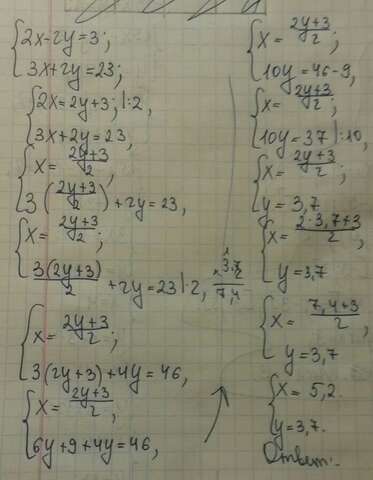 {2x-2y=3;
3x+2y=23;
{2x=2y+3; |:2,
3x+2y=23,
{x=\frac{2y+3}{2};
3(\frac{2y+3}{2})+2y=23,
{x=\frac{2y+3}{2};
\frac{3(2y+3)}{2}+2y=23|·2,
{x=\frac{2y+3}{2};
3(2y+3)+4y=46,
{x=\frac{2y+3}{2},
6y+9+4y=46,
{x=\frac{2y+3}{2};
10y=46-9,
{x=\frac{2y+3}{2};
10y=37|:10,
{x=\frac{2y+3}{2};
y=3,7
{x=\frac{2·3,7+3}{2},
y=3,7
{x=\frac{7,4+3}{2},
y=3,7
{x=5,2.
y=3,7.
Ответ: